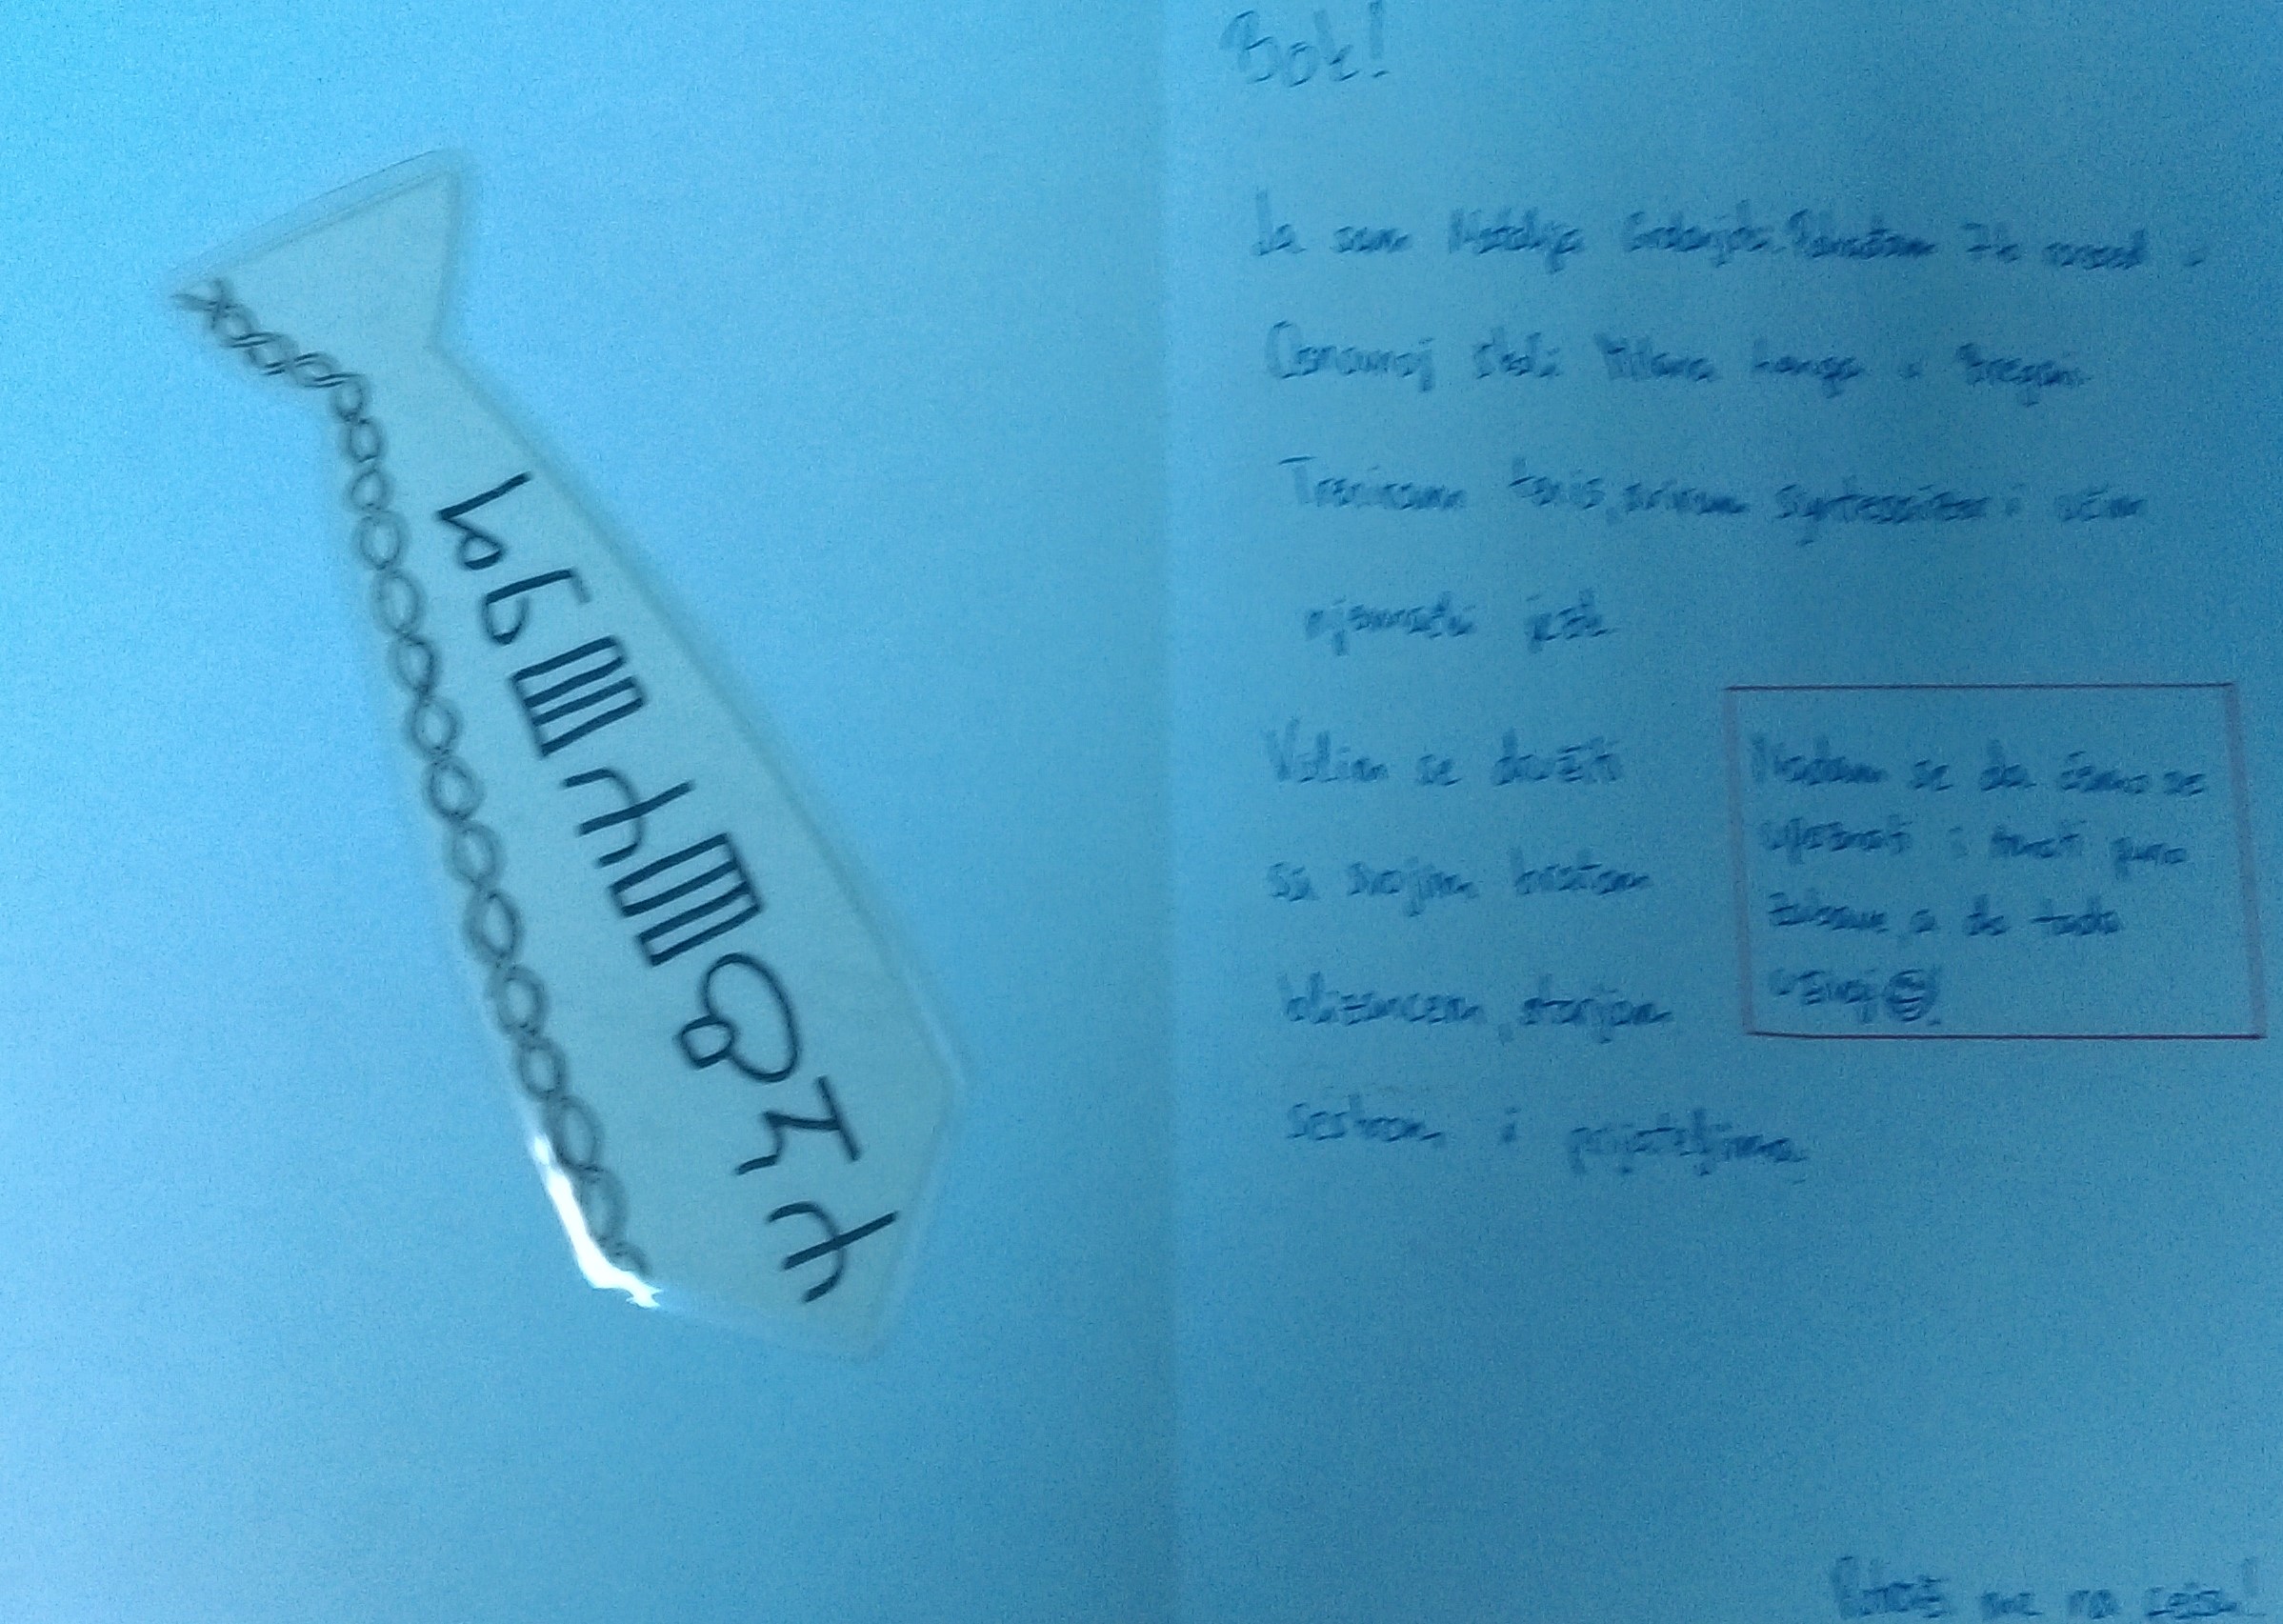 ⰘⰓⰂⰀⰕⰔⰍⰀ
Bok!
Ja sam Natalija Pohađam razred u
Osnovnoj školi Milana Langa u Bregani.
Treniram tenis, sviram syntessizer i učim
njemački jezik.
Volim se družiti
sa svojim bratom
blizancem, starijom
sestrom i prijateljima.
Nadam se da ćemo se
upoznati i imati puno
zabave, a do tada
uživaj!
Potraži me na